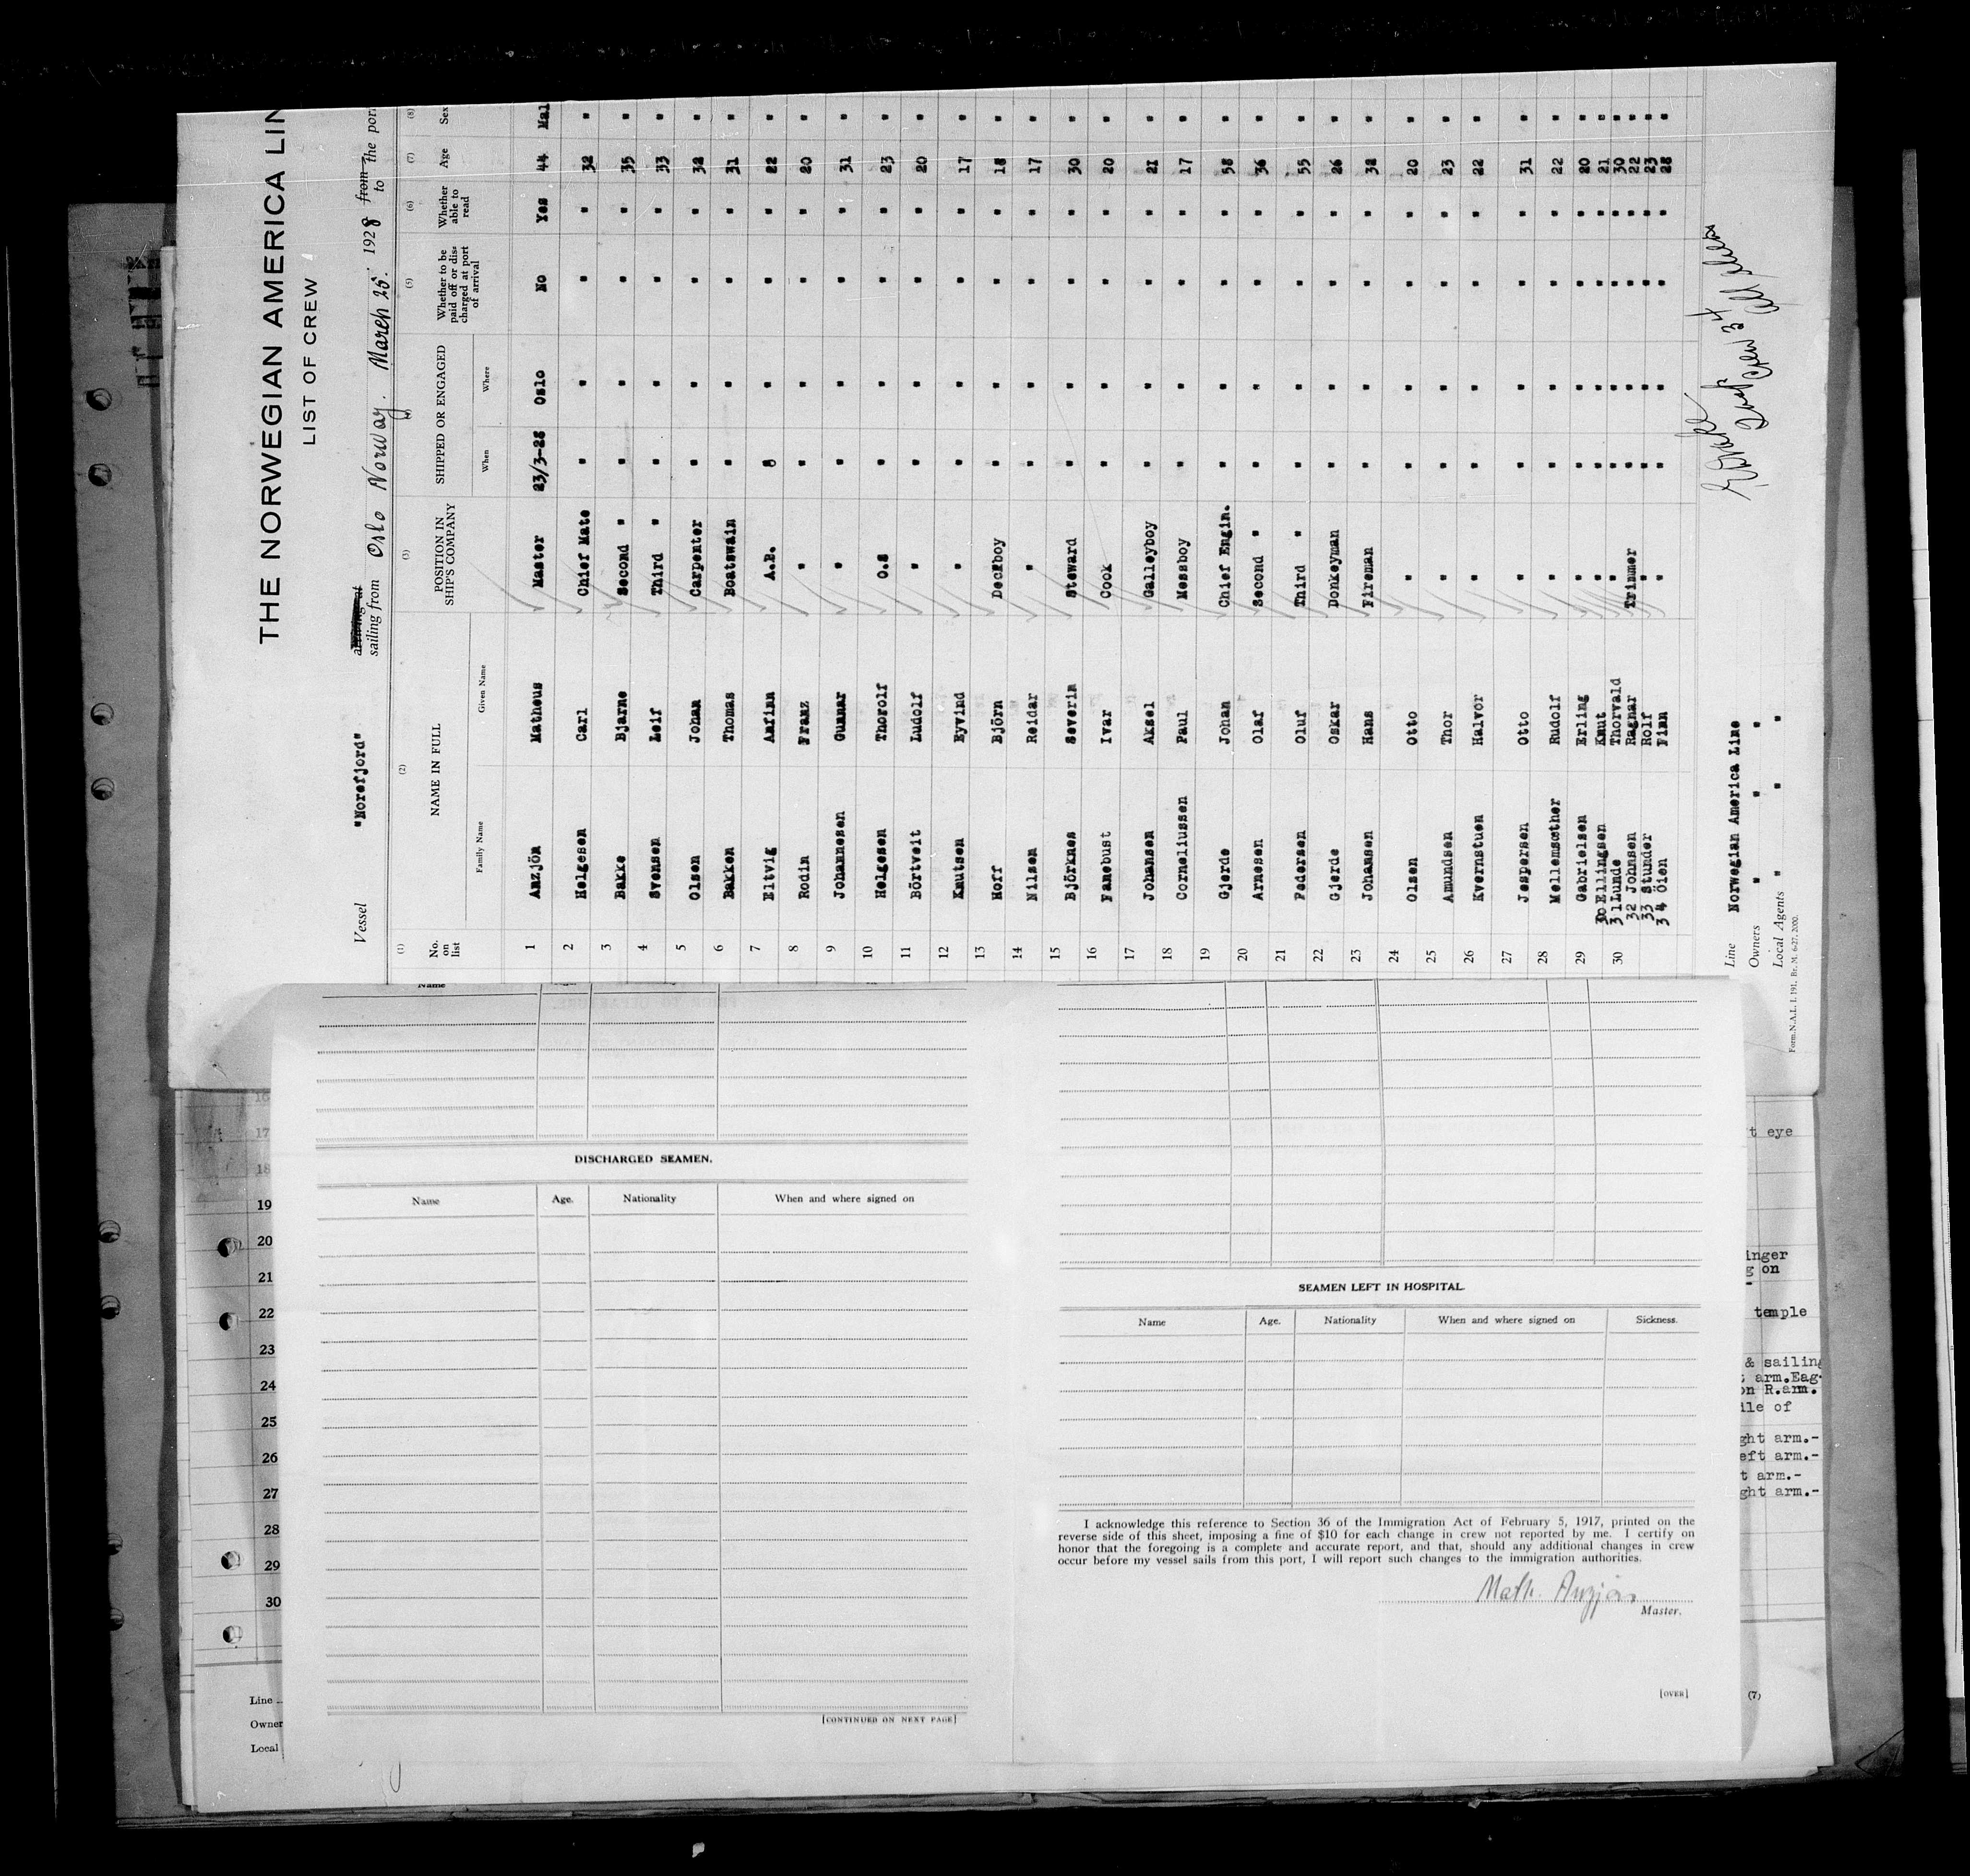 THE NORWEGIAN AMERICA LIN
LIST OF CREW
Vessel "Norefjord" sailing from Oslo Norway. March 25. 1928 from the por
to
(1) (2) (3) (5) (6) (7) (8)
No. on list NAME IN FULL POSITION IN SHIP'S COMPANY SHIPPED OR ENGAGED Whether to be paid off or discharged at port of arrival Whether able to read Age Sex
Family Name Given Name When Where
1 Anzjön Matheus Master 23/3-28 Oslo No Yes 44 Mal
2 Helgesen Carl Chief Mate " " " " 32 "
3 Bakke Bjarne Second " " " " " 35 "
4 Svensen Leif Third " " " " " 33 "
5 Olsen Johan Carpenter " " " " 32 "
6 Bakken Thomas Boatswain " " " " 31 "
7 Eltvig Anfinn A.B. " " " " 22 "
8 Rodin Franz " " " " " 20 "
9 Johannesen Gunnar " " " " " 31 "
10 Helgesen Thorolf O.S " " " " 23 "
11 Börtveit Ludolf " " " " " 20 "
12 Knutsen Eyvind " " " " " 17 "
13 Hoff Björn Deckboy " " " " 18 "
14 Nilsen Reidar " " " " " 17 "
15 Björknes Severin Steward " " " " 30 "
16 Fanebust Ivar Cook " " " " 20 "
17 Johansen Aksel Galleyboy " " " " 21 "
18 Corneliussen Paul Messboy " " " " 17 "
19 Gjerde Johan Chief Engin. " " " " 58 "
20 Arnesen Olaf Second " " " " " 36 "
21 Pedersen Oluf Third " " " " " 55 "
22 Gjerde Oskar Donkeyman " " " " 26 "
23 Johansen Hans Fireman " " " " 38 "
24 Olsen Otto " " " " " 20 "
25 Amundsen Thor " " " " " 23 "
26 Kvernstuen Halvor " " " " " 22 "
27 Jespersen Otto " " " " " 31 "
28 Mellemsæther Rudolf " " " " " 22 "
29 Gabrielsen Erling " " " " " 20 "
30 30 Ellingsen Knut " " " " " 21 "
31 Lunde Thorvald " " " " " 30 "
32 Johnsen Ragnar Trimmer " " " " 22 "
33 Stunder Rolf " " " " " 23 "
34 Öien Finn " " " " " 28 "
Crew 34
Line Norwegian America Line
Owners " " "
Local Agents " " "
Form.N.A.L. I. 191. Br. M. 6-27. 2000.
Name
DISCHARGED SEAMEN.
Name Age. Nationality When and where signed on
[CONTINUED ON NEXT PAGE]
SEAMEN LEFT IN HOSPITAL.
Name Age. Nationality When and where signed on Sickness.
I acknowledge this reference to Section 36 of the Immigration Act of February 5, 1917, printed on the
reverse side of this sheet, imposing a fine of $10 for each change in crew not reported by me. I certify on
honor that the foregoing is a complete and accurate report, and that, should any additional changes in crew
occur before my vessel sails from this port, I will report such changes to the immigration authorities.
Math. Anzjön
Master.
[OVER]
16
17
18
19
20
21
22
23
24
25
26
27
28
29
30
Line
Owner
Local
't eye
inger
g on
temple
& sailing
t arm.Eag-
on R.arm.
ile of
ght arm.-
eft arm.-
t arm.-
ght arm.-
(7)